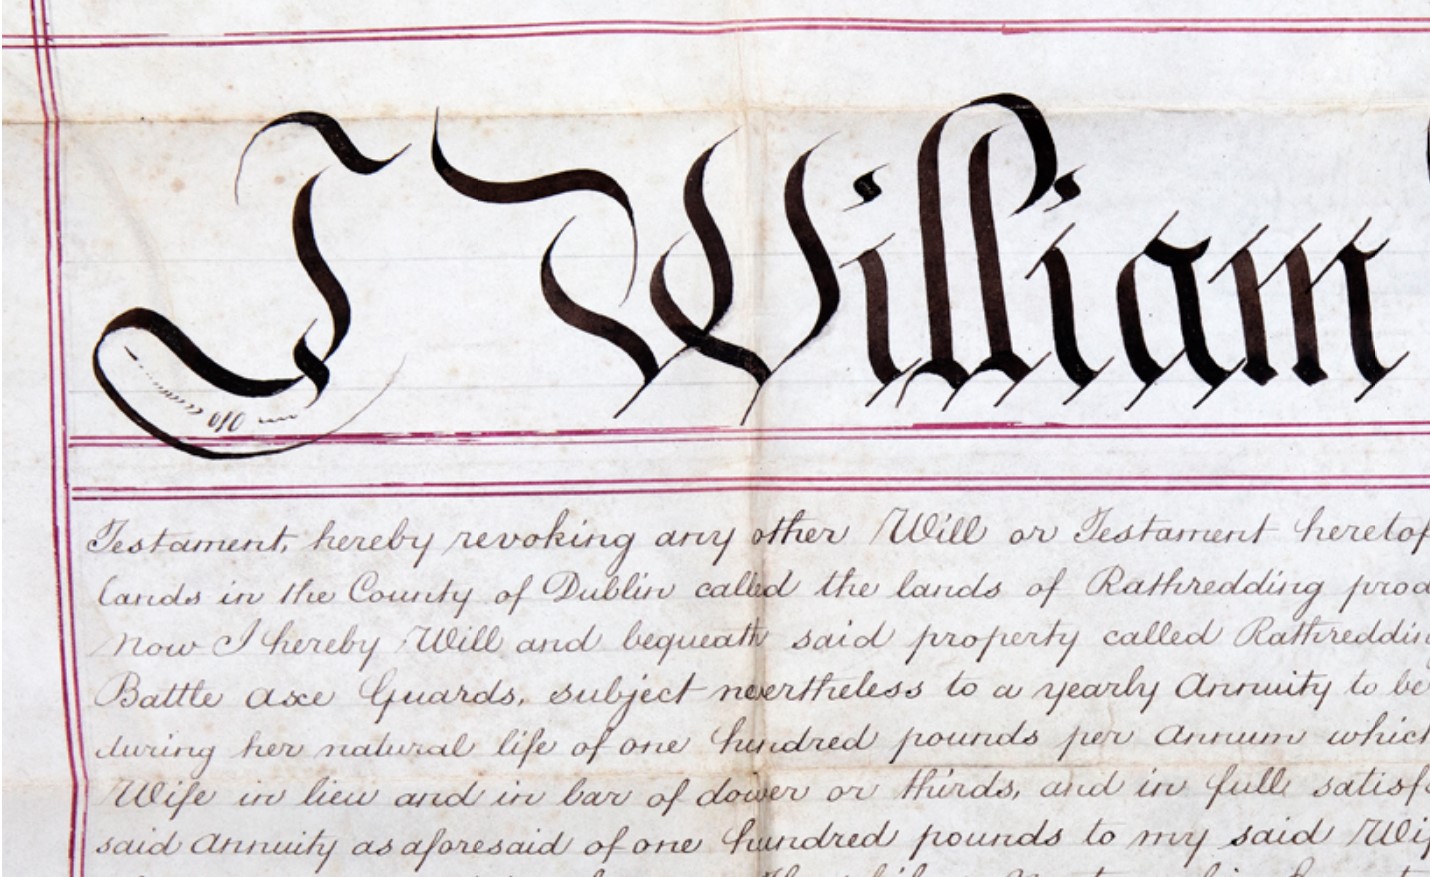 I William
Testament, hereby revoking any other Will or Testament heretof
lands in the County of Dublin called the lands of Rathredding prod
now I hereby Will and bequeath said property called Rathreddin
Battle axe Guards, subject nevertheless to a yearly Annuity to be
during her natural life of one hundred pounds per Annum which
Wife in lieu and in bar of dower or thirds, and in full satisf
said Annuity as aforesaid of one hundred pounds to my said Wif